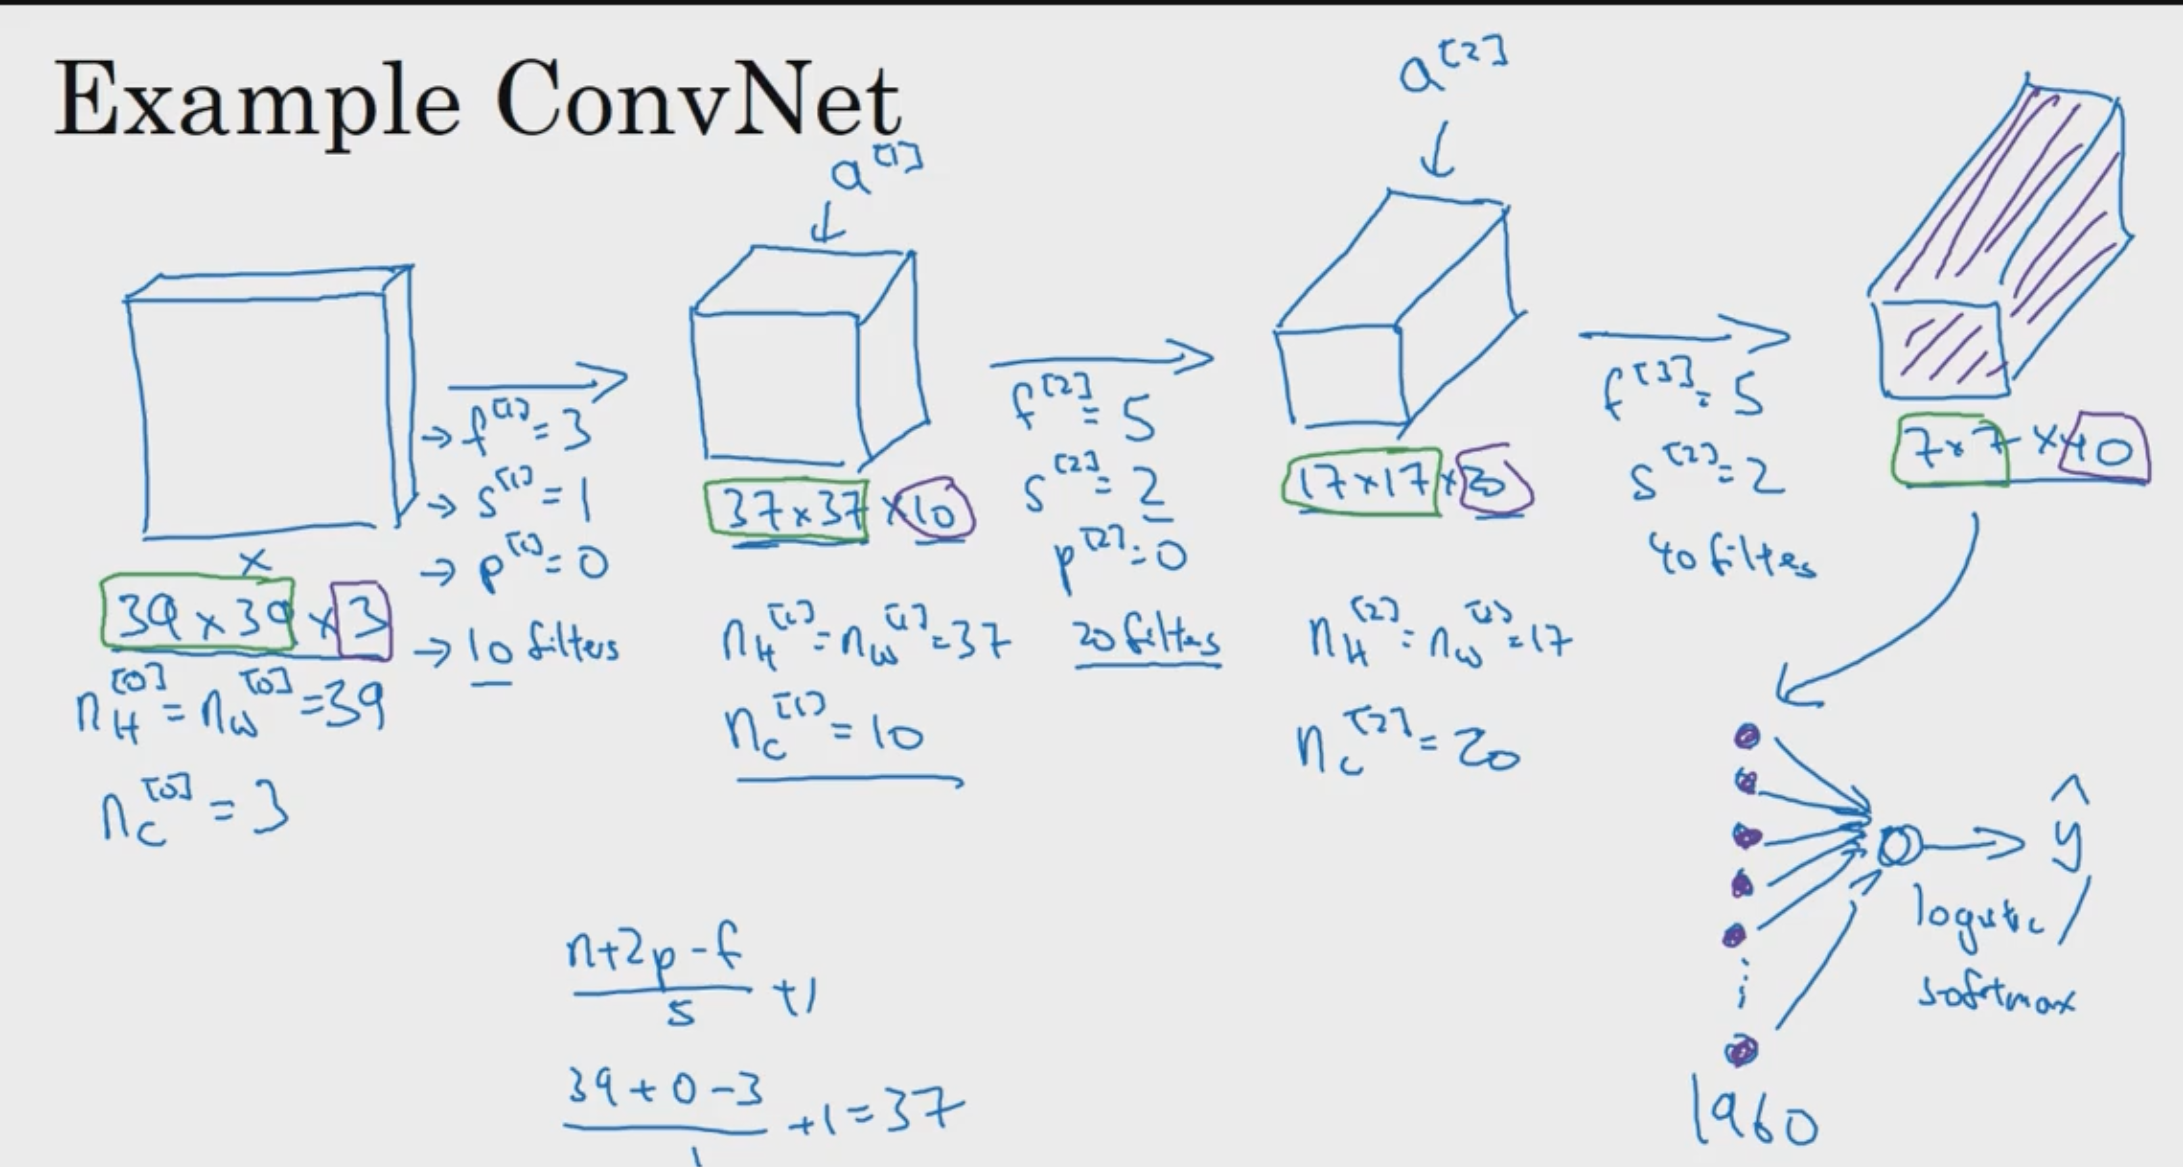 Example ConvNet
a^[1]
a^[2]
x
39 x 39 x 3
n_H^[0] = n_W^[0] = 39
n_c^[0] = 3
→ f^[1] = 3
→ s^[1] = 1
→ p^[1] = 0
→ 10 filters
37 x 37 x 10
n_H^[1] = n_W^[1] = 37
n_c^[1] = 10
f^[2] = 5
s^[2] = 2
p^[2] = 0
20 filters
17 x 17 x 20
n_H^[2] = n_W^[2] = 17
n_c^[2] = 20
f^[3] = 5
s^[2] = 2
40 filters
7 x 7 x 40
ŷ
logistic /
softmax
1960
(n+2p-f)/s +1
(39+0-3)/1 +1 = 37